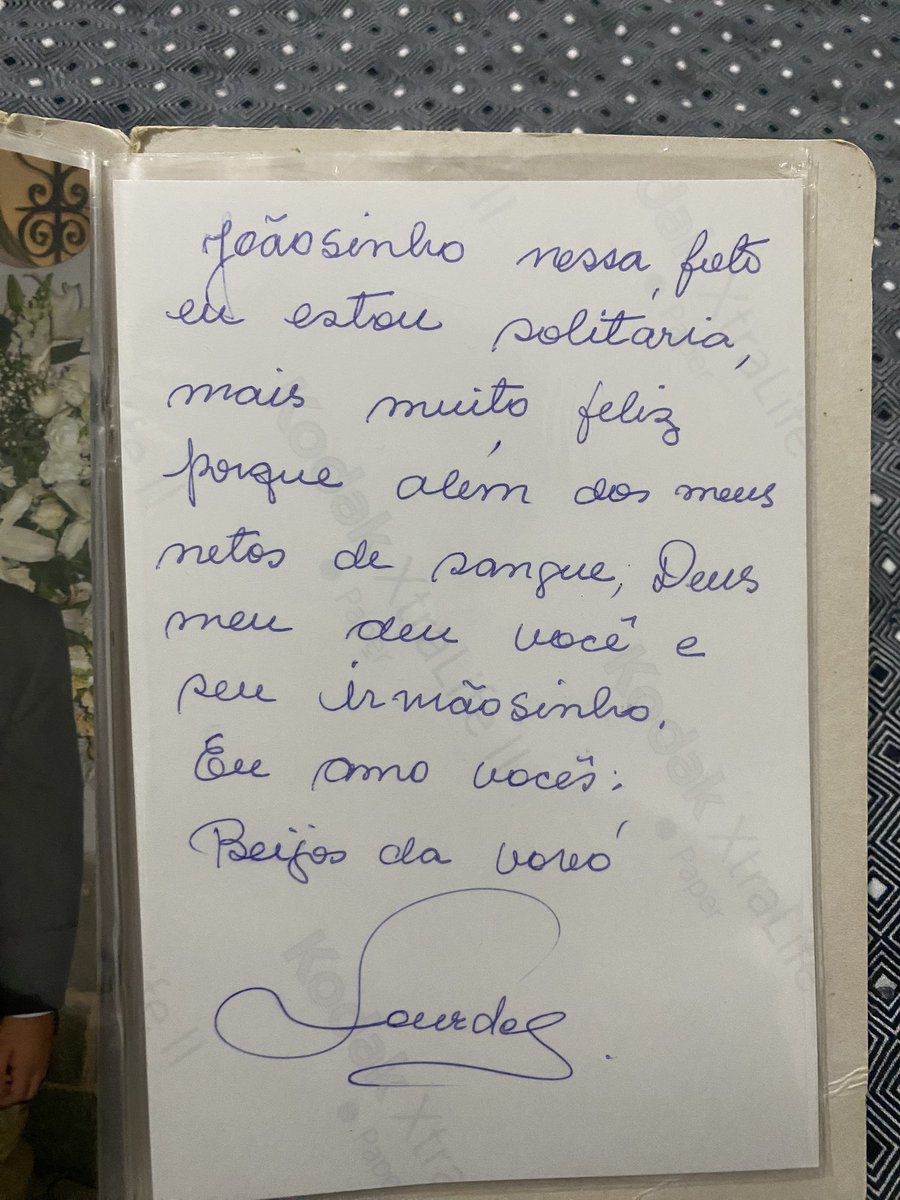 Joãosinho nessa foto
eu estou solitária,
mais muito feliz
porque além dos meus
netos de sangue, Deus
meu deu você e
seu irmãosinho.
Eu amo vocês.
Beijos da vovó
Lourdes.
Kodak XtraLife II
Paper
Kodak XtraLife II
Paper
Kodak XtraLife II
Paper
Kodak Xtra
Paper